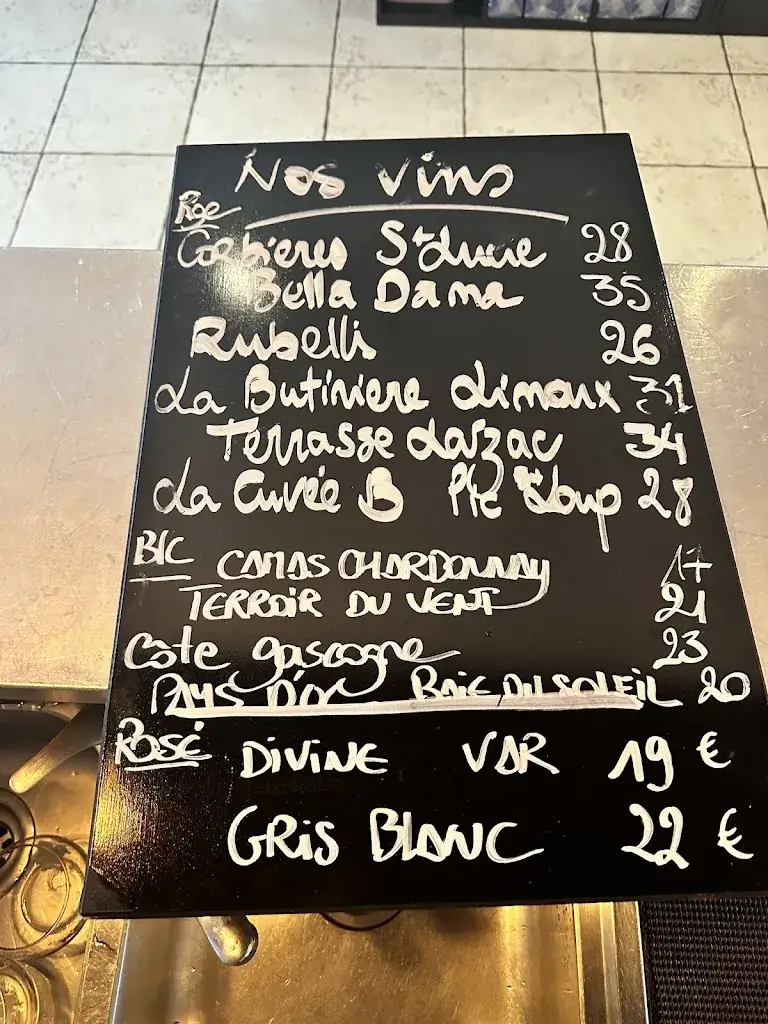 Nos vins
Rge
Corbieres Ste Lucie 28
Bella Dama 35
Rubellis 26
La Butiniere Limoux 31
Terrasse Larzac 34
La Cuvée B Pic St Loup 28
BLC
CAMAS CHARDONNAY 17
TERROIR DU VENT 21
Cote gascogne 23
PAYS D'OC BAIE DU SOLEIL 20
Rosé DIVINE VAR 19 €
GRIS BLANC 22 €